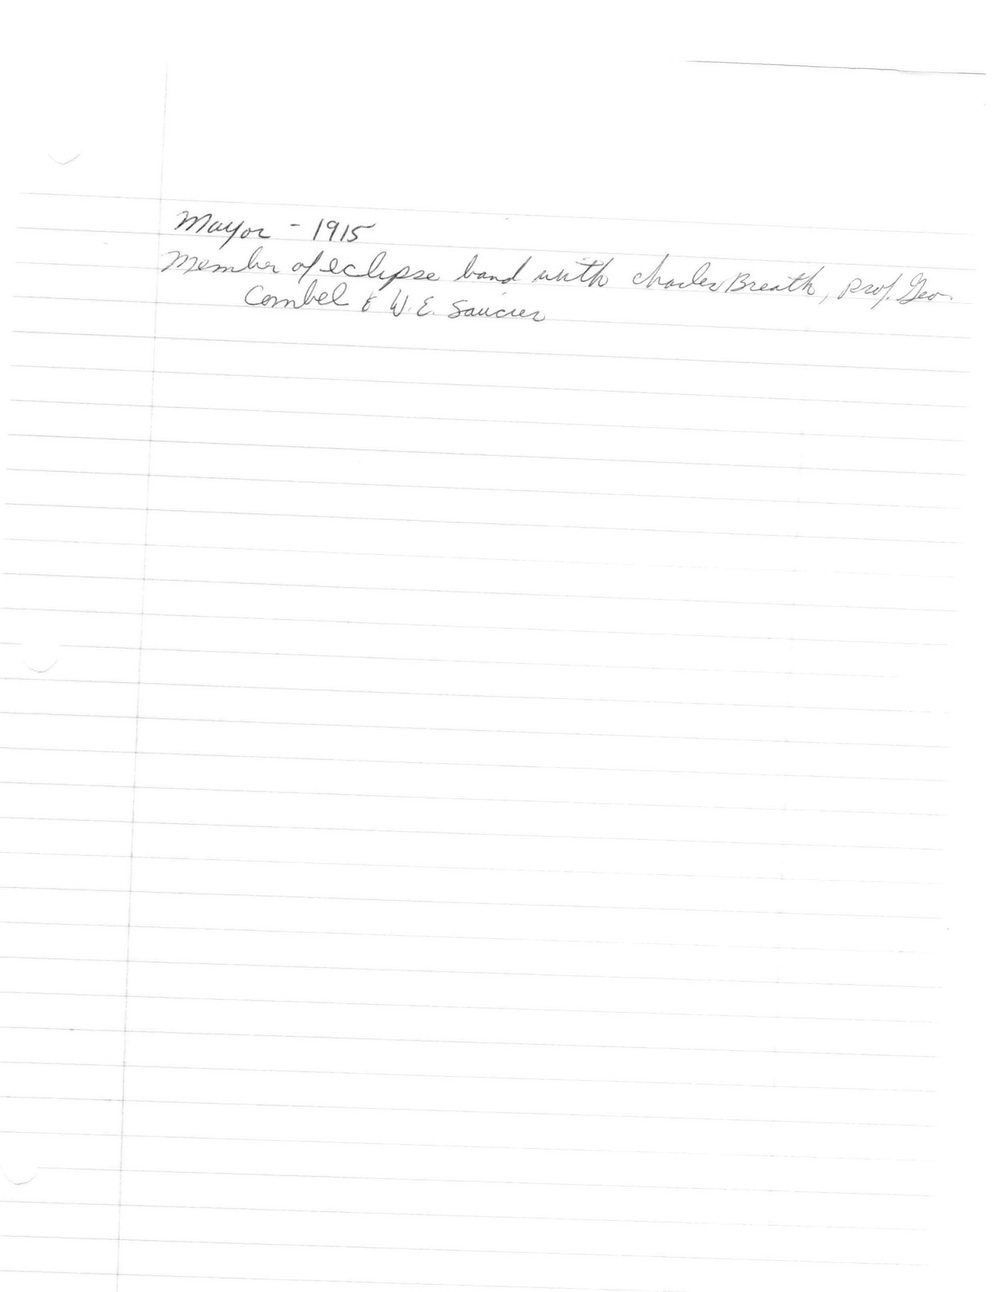 Mayor - 1915
Member of eclipse band with Charles Breath, Prof. Geo.
Combel & W.E. Saucier